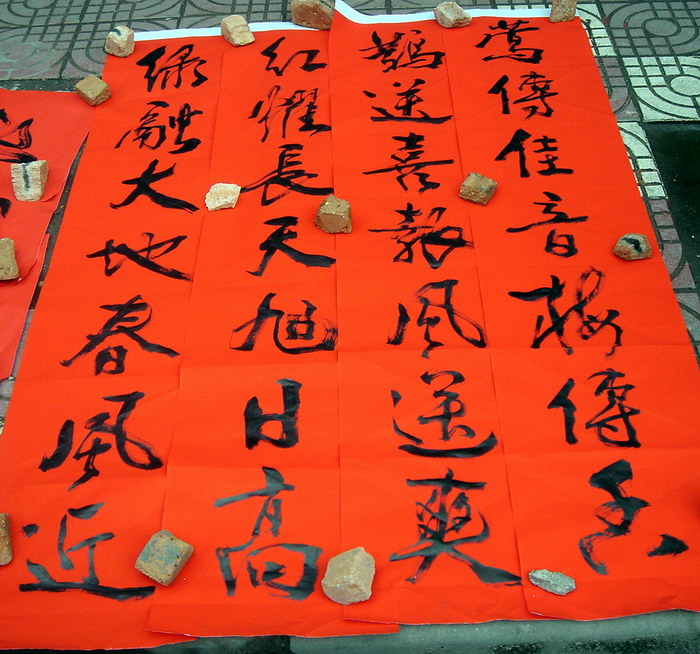 鶯傳佳音梅傳香
鵲送喜報風送爽
紅耀長天旭日高
綠融大地春風近